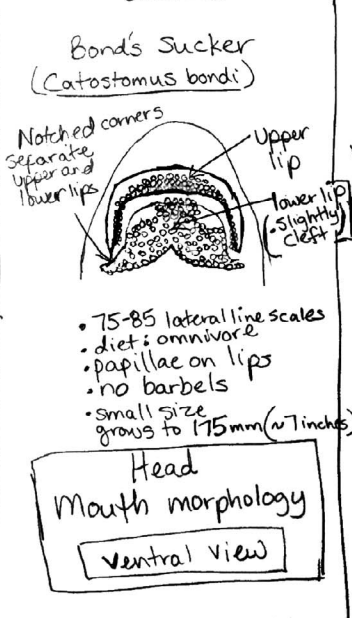 Bond's Sucker
(Catostomus bondi)
Notched corners
separate
upper and
lower lips
Upper
lip
lower lip
(•slightly
cleft)
• 75-85 lateral line scales
• diet: omnivore
• papillae on lips
• no barbels
• small size
grows to 175mm (~7 inches)
Head
Mouth morphology
Ventral view